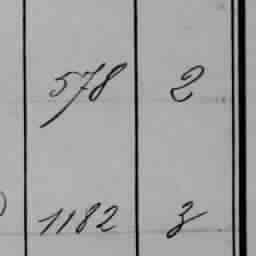 578 2
1182 3